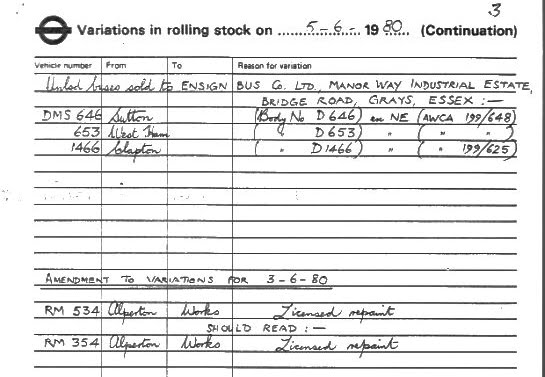 3
Variations in rolling stock on 5-6- 1980 (Continuation)
Vehicle number From To Reason for variation
Unlcd buses sold to ENSIGN BUS Co. LTD., MANOR WAY INDUSTRIAL ESTATE,
BRIDGE ROAD, GRAYS, ESSEX :—
DMS 646 Sutton (Body No D646) en NE (AWCA 199/648)
653 West Ham ( " D653) " ( " " )
1466 Clapton ( " D1466) " ( " 199/625)
AMENDMENT TO VARIATIONS FOR 3-6-80
RM 534 Alperton Works Licensed repaint
SHOULD READ :—
RM 354 Alperton Works Licensed repaint